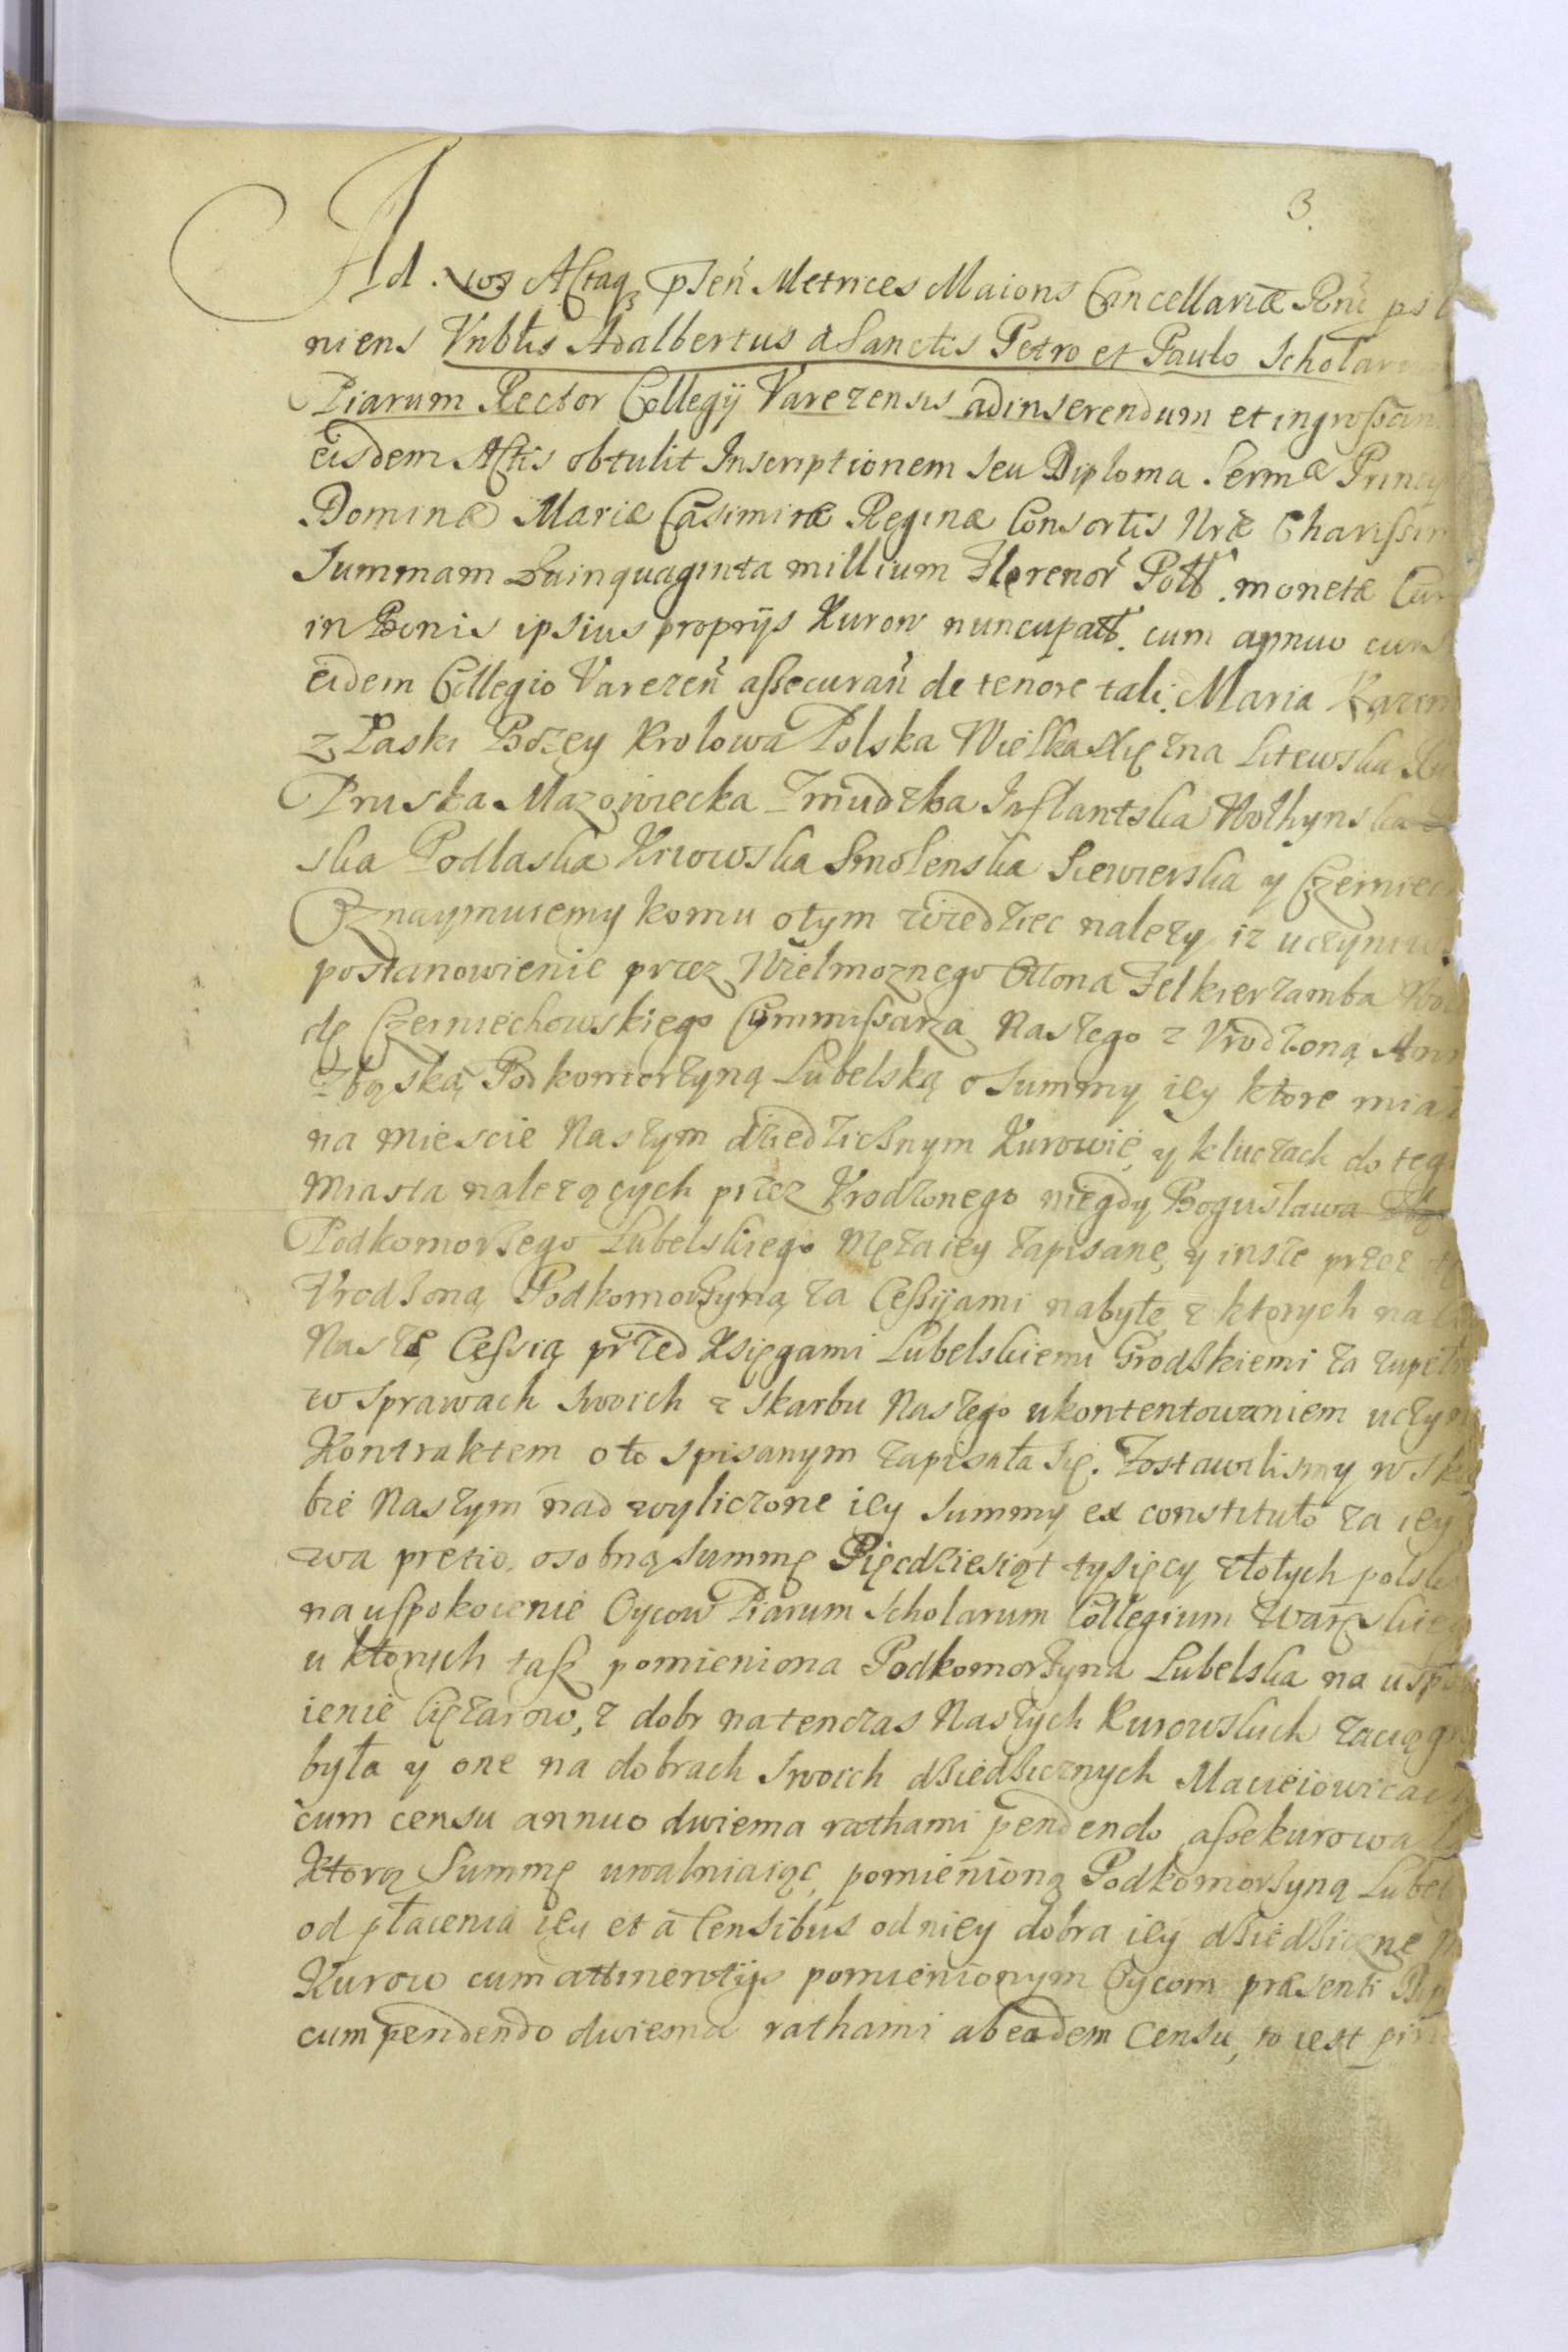 3.
Ad. Actaq psen Metrices Maioris Cancellariæ Rni
niens Vnblis Adalbertus a Sanctis Petro et Paulo Scholarum
Piarum Rector Collegij Varezensis adinserendum et ingrossan
eisdem Actis obtulit Inscriptionem seu Diploma Sermæ Princi
Dominæ Mariæ Casimiræ Reginæ Consortis Nræ Charissim
Summam Quinquaginta millium Florenor Poll. monetæ Cur
in Bonis ipsius proprijs Kurow nuncupatt. cum annuo cens
eidem Collegio Varezen assecuran de tenore tali. Maria Kazim
z Łaski Bozey Krolowa Polska Wielka Xięzna Litewska Ru
Pruska Mazowiecka Zmudzka Inflantska Wołhynska
ska Podlaska Kiiowska Smolenska Siewierska y Czerniec
Oznaymuiemy komu otym wiedziec nalezy, iz uczyniw
postanowienie przez Wielmoznego Ottona Felkierzamba Wo
dę Czerniechowskiego Commissarza Naszego z Vrodzoną Ann
Zbąską Podkomorzyną Lubelską o Summy iey ktore mia
na miescie Naszym dziedzicznym Kurowie, y kluczach do teg
Miasta nalezących przez Vrodzonego niegdy Bogusława
Podkomorzego Lubelskiego Męza iey zapisane, y insze przez
Vrodzoną Podkomorzyną za Cessyami nabyte z ktorych na
Naszę Cessią przed Xięgami Lubelskiemi Grodzkiemi za zupeł
w sprawach swoich z skarbu Naszego ukontentowaniem uczyn
Kontraktem oto spisanym zapisała się. Zostawilismy w ska
bie Naszym nad wyliczone iey Summy ex constituto za iey
wa pretio. osobną summę Pięcdziesiąt tysięcy złotych polsk
na uspokoienie Oycow Piarum Scholarum Collegium Waręskieg
u ktorych taż pomieniona Podkomorzyna Lubelska na uspo
ienie Cięzarow, z dobr natenczas Naszych Kurowskich zaciągn
była y one na dobrach swoich dziedzicznych Macieiowicac
cum censu annuo dwiema rathami pendendo assekurowa
Ktorą Summę uwalniaiąc, pomienioną Podkomorzyną Lubel
od płacenia iey et a Censibus od niey dobra iey dziedziczne
Kurow cum attinentijs pomienionym Oycom præsenti
cum pendendo dwiema rathami ab eadem Censu, to iest